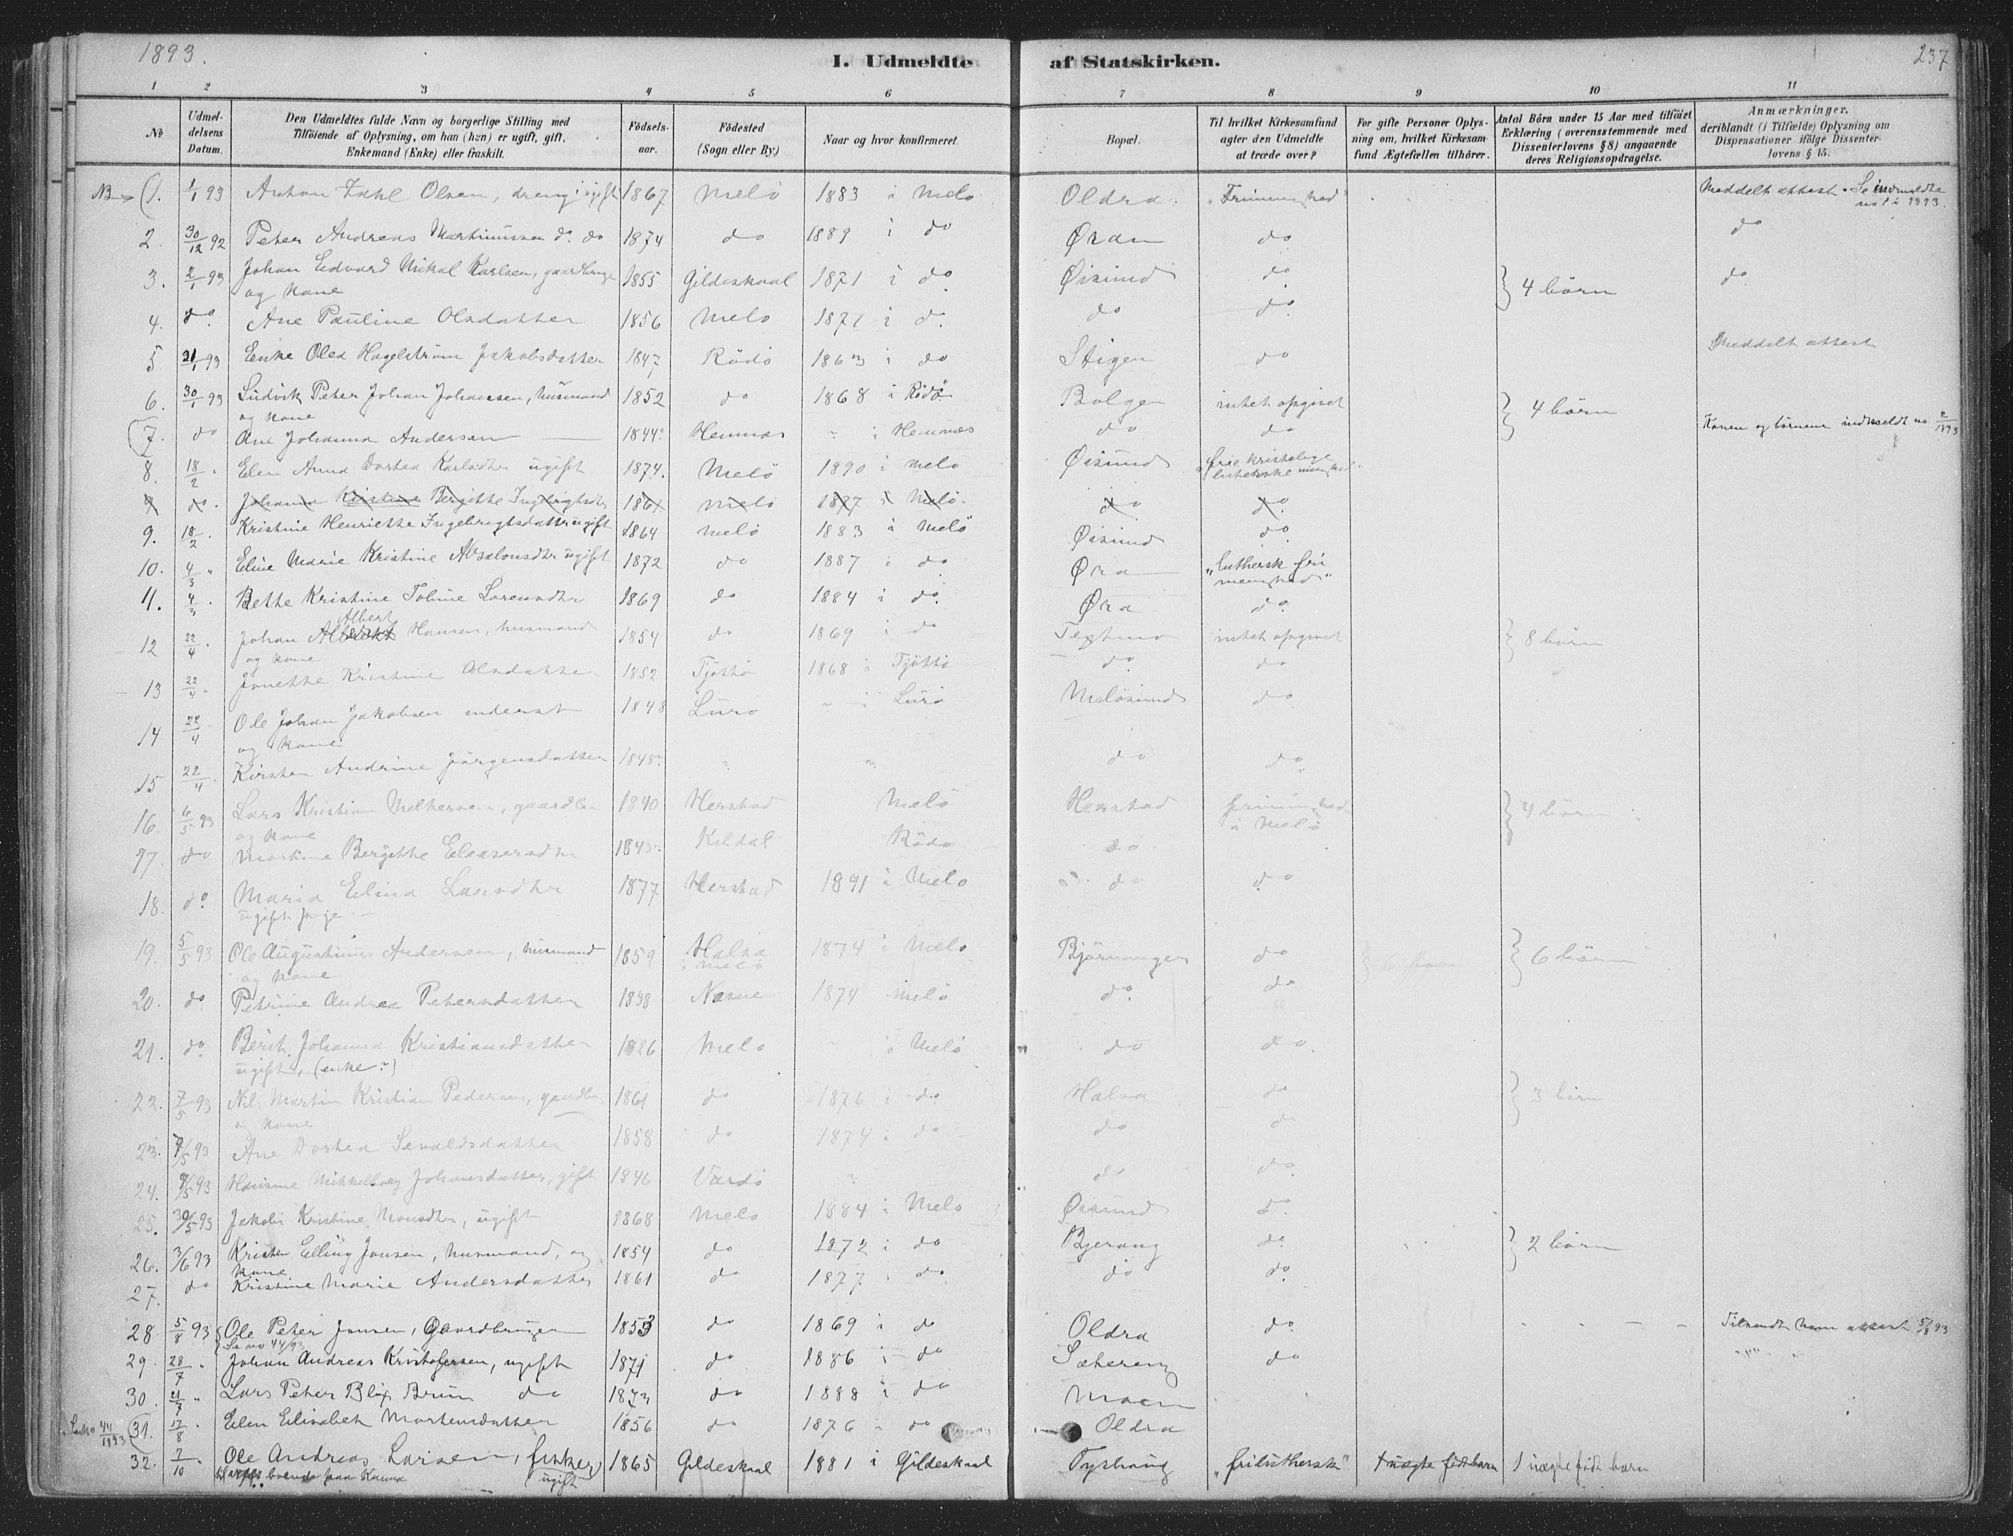 1893.
I. Udmeldte af Statskirken.
237
1 2 3 4 5 6 7 8 9 10 11
No
Udmeldelsens Datum.
Den Udmeldtes fulde Navn og borgerlige Stilling med
Tilföiende af Oplysning, om han (hun) er ugift, gift,
Enkemand (Enke) eller fraskilt.
Födselsaar.
Födested
(Sogn eller By.)
Naar og hvor konfirmeret
Bopæl.
Til hvilket Kirkesamfund
agter den Udmeldte
at træde over?
For gifte Personer Oplysning
om, hvilket Kirkesamfund
Ægtefællen tilhörer.
Antal Börn under 15 Aar med tilföiet
Erklæring (overensstemmende med
Dissenterlovens § 8) angaaende
deres Religionsopdragelse.
Anmærkninger,
deriblandt (i Tilfælde) Oplysning om
Dispensationer ifölge Dissenterlovens
§ 15.
NB 1. 1/1 93 Anton Zahl Olsen, dreng ugift 1867 Melö 1883 i Melö Oldra. "Frimenighed" Meddelt attest. Se indmeldte no 1 i 1893.
2. 30/12 92 Peter Andreas Martinussen do. do 1874 do 1889 i do Øran do do
3. 2/1 93 Johan Edvard Mikal Karlsen, gaardbruger 1855 Gildeskaal 1871 i do Øisund do 4 börn do
og kone
4. do. Ane Pauline Olsdatter 1856 Melö 1871 i d. do do
5 21/1 93 Enke Olea Hagelström Jakobsdatter 1847 Rödö 1863 i do Stigen do Meddelt attest
6. 30/1 93 Ludvik Peter Johan Johansen, husmand 1852 do 1868 i Rödö Bolgen intet opgivet 4 börn
og kone
7. do Ane Johanna Andersen 1844 Hemnæs " i Hemnæs do do Konen og börnene indmeldt no 2/1893
8. 18/2 Elen Anna Dortea Karlsdtr ugift 1874. Melö 1890 i Melö Øisund "frie kristelige lutherske menighed"
9 do. Johanna Kristine Bergitte Ingebrigtsdtr 1861 Melö 1877 i Melö do do
9. 18/2 Kristine Henriette Ingebrigtsdatter ugift 1864 Melö 1883 i Melö Øisund do
10. 4/3 " Eline Marie Kristine Absalonsdtr ugift 1872 do 1887 i do Øra "luthersk fri menighed"
11. 4/3 Bette Kristine Toline Lorensdtr 1869 do 1884 i do Øra do
Albert
12 22/4 Johan Hansen, husmand 1854 do 1869 i do intet opgivet 8 börn
og kone
13 22/4 Janette Kristine Olsdatter 1852 Tjöttö 1868 i Tjöttö do. do
14 22/4 Ole Johan Jakobsen inderst 1848 Lurö " i Lurö Melösund do
og kone
15 22/4 Kirsten Andrine Jörgensdatter 1848 " " do do
16. 6/5 93 Lars Kristian Melkersen, gaardbr 1840 Herstad Melö Herstad frimenighed i Melö 4 börn
og kone
17. do Martine Bergitte Eleasersdtr 1843 Kildal Rödö do
18. do. Maria Elina Larsdtr 1877 Herstad 1891 i Melö do do
ugift pige
19. 5/5 93 Ole Augustinus Andersen, husmand 1859 Halsa i Melö 1874 i Melö Bjærangen do 6 börn
og kone
20. do Petrine Andrea Petersdatter 1858 Nesne 1874 Melö do. do
21. do. Berit Johanna Kristiansdatter 1826 Melö i Melö do do
ugift, (enke?)
22. 7/5 93 Nils Martin Kristian Pedersen, gaardbr 1861 do 1876 i do Halsa do 3 börn
og kone
23. 9/5 93 Ane Dortea Sevaldsdatter 1858 do 1874 i do do do
24. 9/5 93 Johansdatter, gift 1846 Vardö " do do
25. 30/5 93 Jakobi Kristine Monsdtr, ugift 1868 Melö 1884 i Melö Øisund do
26. 3/6 93 Krister Elling Jansen, husmand, og 1854 do 1872 i do Bjerang do 2 börn
kone
27. do Kristine Marie Andersdatter 1861 do 1877 i do. do do
28 5/8 93 Ole Peter Jensen, Gaardbruger 1853 do 1869 i do Oldra do Tilsendt ham attest 5/8 93
Se no 44/93
29. 28/7 " Johan Andreas Kristofersen, ugift 1871 do 1886 i do do
30. 21/7 " Lars Peter Blix Brun do 1873 do 1888 i do
Se no 44/1893 31. 17/8 Elen Elisabet Mortensdatter 1856 do 1876 do Oldra
32. 7/10 Ole Andreas Larsen, fisker, 1865 Gildeskaal 1881 i Gildeskaal "frilutherske" 1 uægte födt barn 1 uægte födt barn
ugift